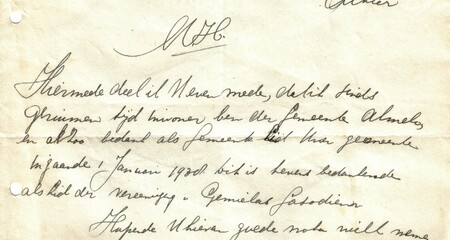 M.H.
Hiermede deel ik U even mede, dat ik sinds
geruimen tijd inwoner ben der Gemeente Almelo,
en alzoo bedank als Gemeente lid Uwer gemeente
Ingaande 1 Januari 1938 dit is tevens bedankende
als lid der vereeniging "Gemielas
Hopende U hiervan goede nota wilt neme